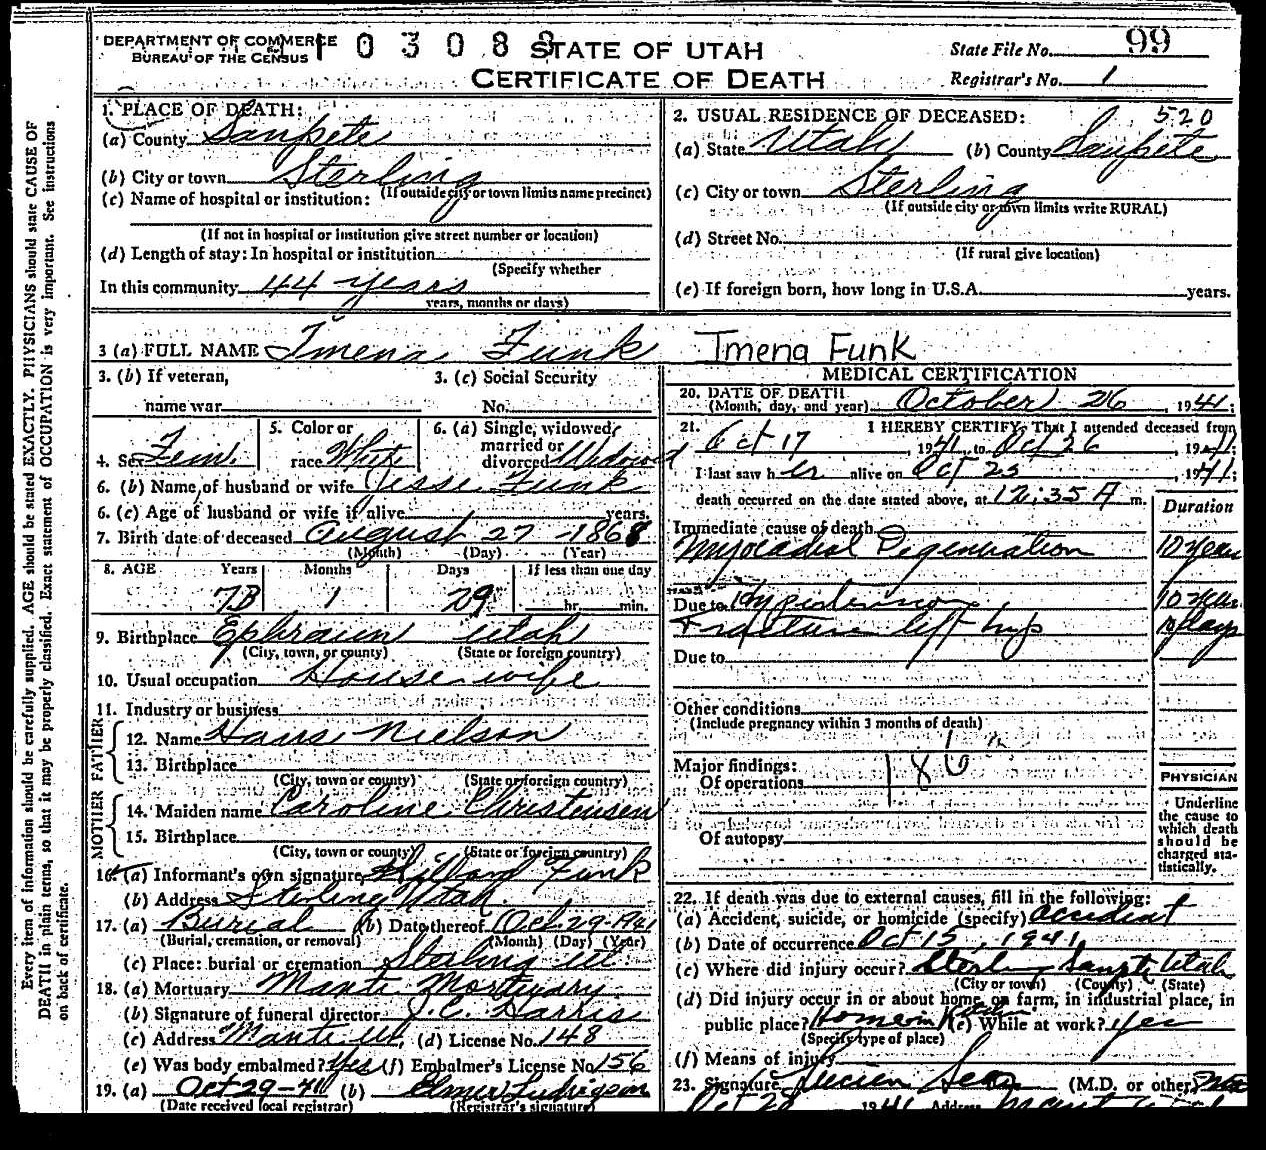 DEPARTMENT OF COMMERCE
BUREAU OF THE CENSUS
STATE OF UTAH
CERTIFICATE OF DEATH
State File No. 99
Registrar's No. 1
Every item of information should be carefully supplied. AGE should be stated EXACTLY. PHYSICIANS should state CAUSE OF
DEATH in plain terms, so that it may be properly classified. Exact statement of OCCUPATION is very important. See instructions
on back of certificate.
1. PLACE OF DEATH:
(a) County Sanpete
(b) City or town Sterling
(If outside city or town limits name precinct)
(c) Name of hospital or institution:
(If not in hospital or institution give street number or location)
(d) Length of stay: In hospital or institution
(Specify whether
In this community 44 years
years, months or days)
2. USUAL RESIDENCE OF DECEASED: 520
(a) State Utah (b) County Sanpete
(c) City or town Sterling
(If outside city or town limits write RURAL)
(d) Street No.
(If rural give location)
(e) If foreign born, how long in U.S.A. years.
3 (a) FULL NAME Imena Funk Imena Funk
3. (b) If veteran, 3. (c) Social Security
name war No.
4. Sex Fem. 5. Color or race White 6. (a) Single, widowed, married or divorced Widowed
6. (b) Name of husband or wife Jesse Funk
6. (c) Age of husband or wife if alive years.
7. Birth date of deceased August 27 - 1868
(Month) (Day) (Year)
8. AGE Years Months Days If less than one day
73 1 29 hr. min.
9. Birthplace Ephraim Utah
(City, town, or county) (State or foreign country)
10. Usual occupation Housewife
11. Industry or business
FATHER
12. Name Hans Nielson
13. Birthplace
(City, town or county) (State or foreign country)
MOTHER
14. Maiden name Caroline Christensen
15. Birthplace
(City, town or county) (State or foreign country)
16. (a) Informant's own signature William Funk
(b) Address Sterling Utah
17. (a) Burial (b) Date thereof Oct. 29-1941
(Burial, cremation, or removal) (Month) (Day) (Year)
(c) Place: burial or cremation Sterling Ut
18. (a) Mortuary Manti Mortuary
(b) Signature of funeral director J.C. Harris
(c) Address Manti Ut. (d) License No. 148
(e) Was body embalmed? Yes (f) Embalmer's License No. 156
19. (a) Oct 29-41 (b) Elmer Ludvigson
(Date received local registrar) (Registrar's signature)
MEDICAL CERTIFICATION
20. DATE OF DEATH
(Month, day, and year) October 26, 1941;
21. I HEREBY CERTIFY, That I attended deceased from
Oct 17, 1941, to Oct 26, 1941;
I last saw her alive on Oct 25, 1941;
death occurred on the date stated above, at 12:35 A m.
Duration
Immediate cause of death
Myocadial Degeneration 10 years
Due to Hypertension 10 years
Fracture left hip 10 days
Due to
Other conditions
(Include pregnancy within 3 months of death)
Major findings:
Of operations 186
Of autopsy
PHYSICIAN
Underline
the cause to
which death
should be
charged sta-
tistically.
22. If death was due to external causes, fill in the following:
(a) Accident, suicide, or homicide (specify) Accident
(b) Date of occurrence Oct 15, 1941
(c) Where did injury occur? Sterling Sanpete Utah
(City or town) (County) (State)
(d) Did injury occur in or about home, on farm, in industrial place, in
public place? Home in Kitchen (e) While at work? yes
(Specify type of place)
(f) Means of injury
23. Signature Lucien Sears (M.D. or other)
1941 Address Manti Utah